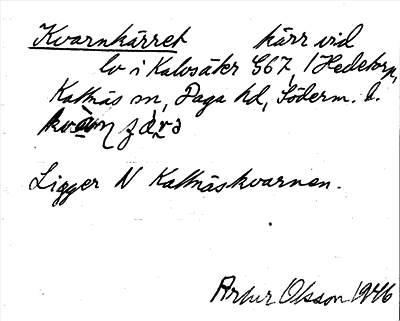 Kvarnkärret kärr vid
lv i Kalosäter S67, i Hedetorp,
Kattnäs sn, Daga hd, Söderm. l.
Ligger N Kattnäskvarnen.
Artur Olsson 1946